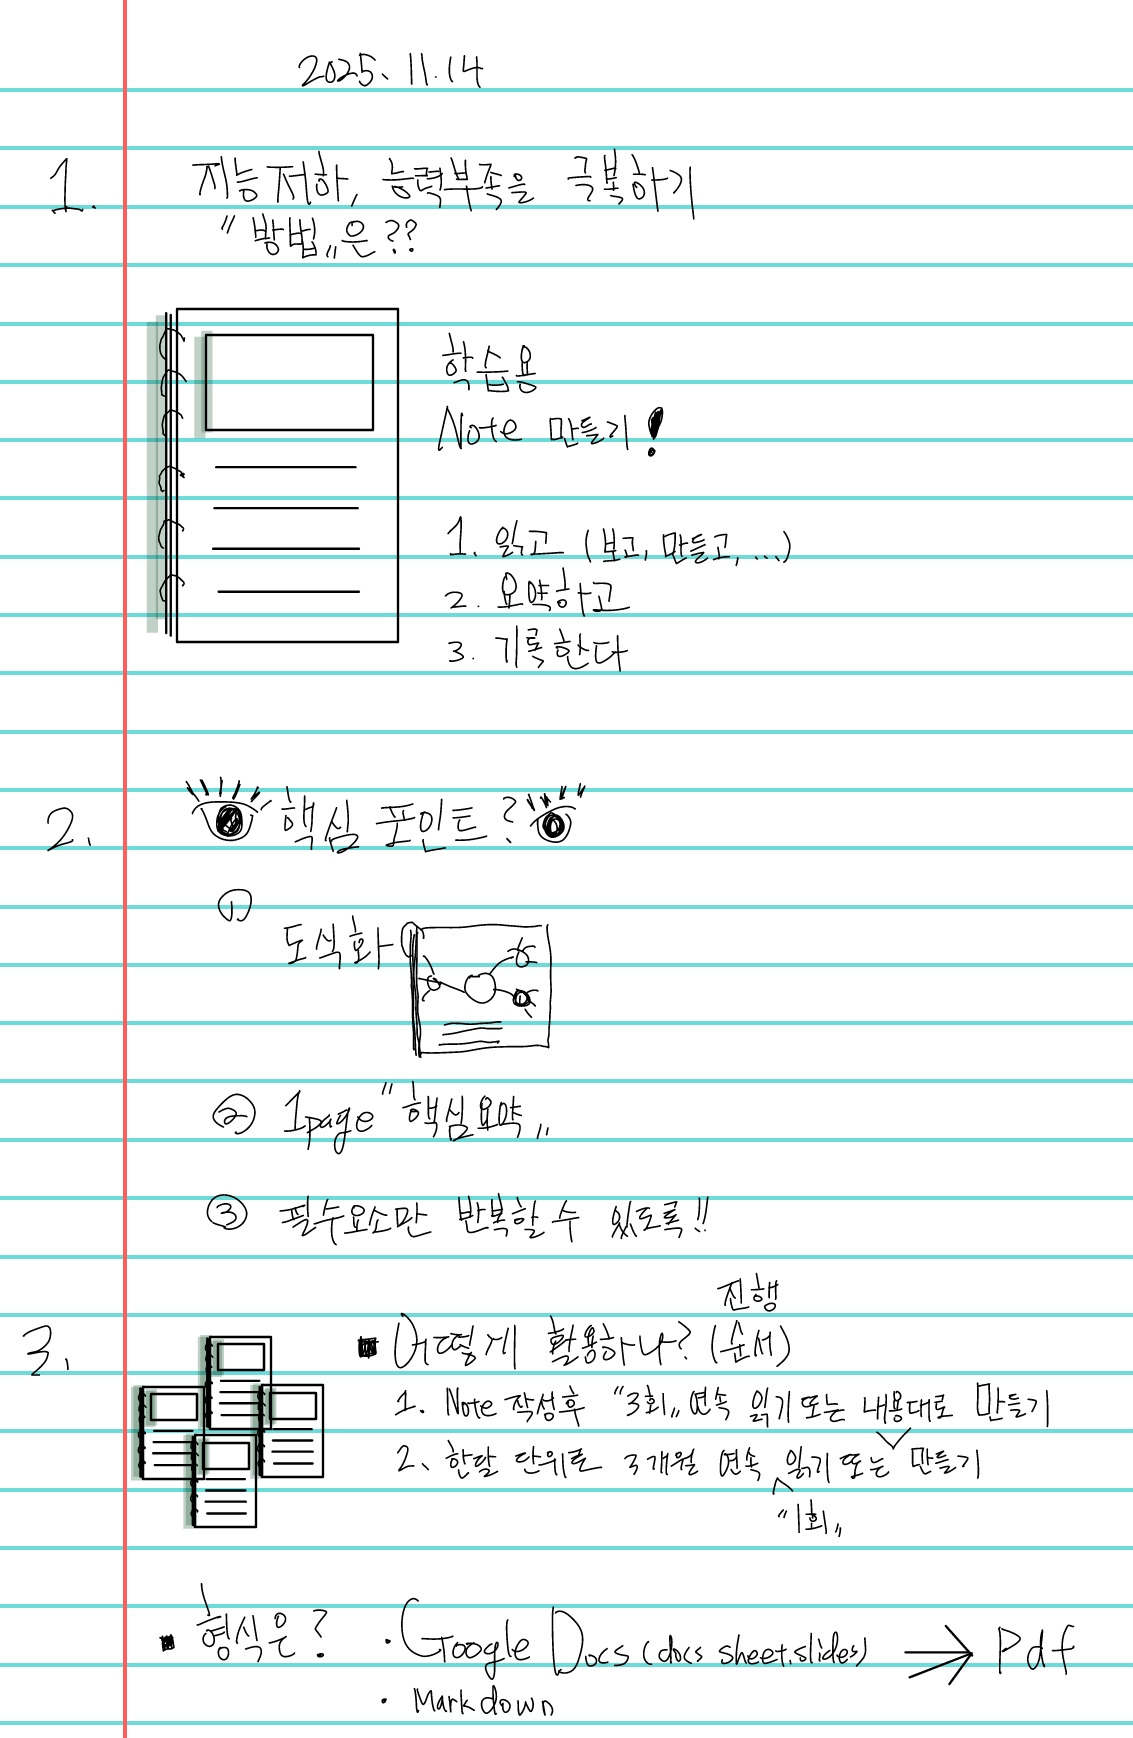 2025. 11.14
1. 지능저하, 능력부족을 극복하기
"방법"은??
학습용
Note 만들기!
1. 읽고 (보고, 만들고, ...)
2. 요약하고
3. 기록한다
2. 핵심 포인트?
① 도식화
② 1page "핵심요약"
③ 필수요소만 반복할 수 있도록!!
진행
3. ▪ 어떻게 활용하나? (순서)
1. Note 작성후 "3회" 연속 읽기 또는 내용대로 만들기
2. 한달 단위로 3개월 연속 읽기 또는 만들기
"1회"
▪ 형식은? · Google Docs (docs sheet.slides) → Pdf
· Markdown